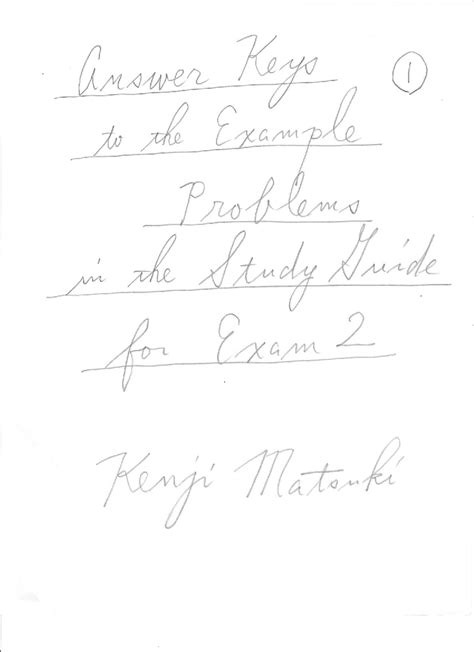 Answer Keys ①
to the Example
Problems
in the Study Guide
for Exam 2
Kenji Matsuki